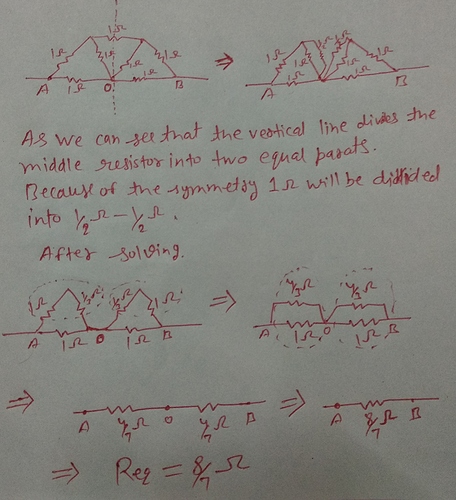 1Ω
1Ω 1Ω 1Ω 1Ω
A 1Ω O 1Ω B
⇒
1Ω 1Ω
A 1Ω 1Ω B
As we can see that the vertical line divides the
middle resistor into two equal parats.
Because of the symmetry 1Ω will be divided
into 1/2Ω - 1/2Ω.
After solving.
1Ω 1/3Ω 1/3Ω 1Ω
A 1Ω O 1Ω B
⇒
4/3Ω 4/3Ω
A 1Ω O 1Ω B
⇒ A 4/7Ω O 4/7Ω B ⇒ A 8/7Ω B
⇒ Req = 8/7 Ω